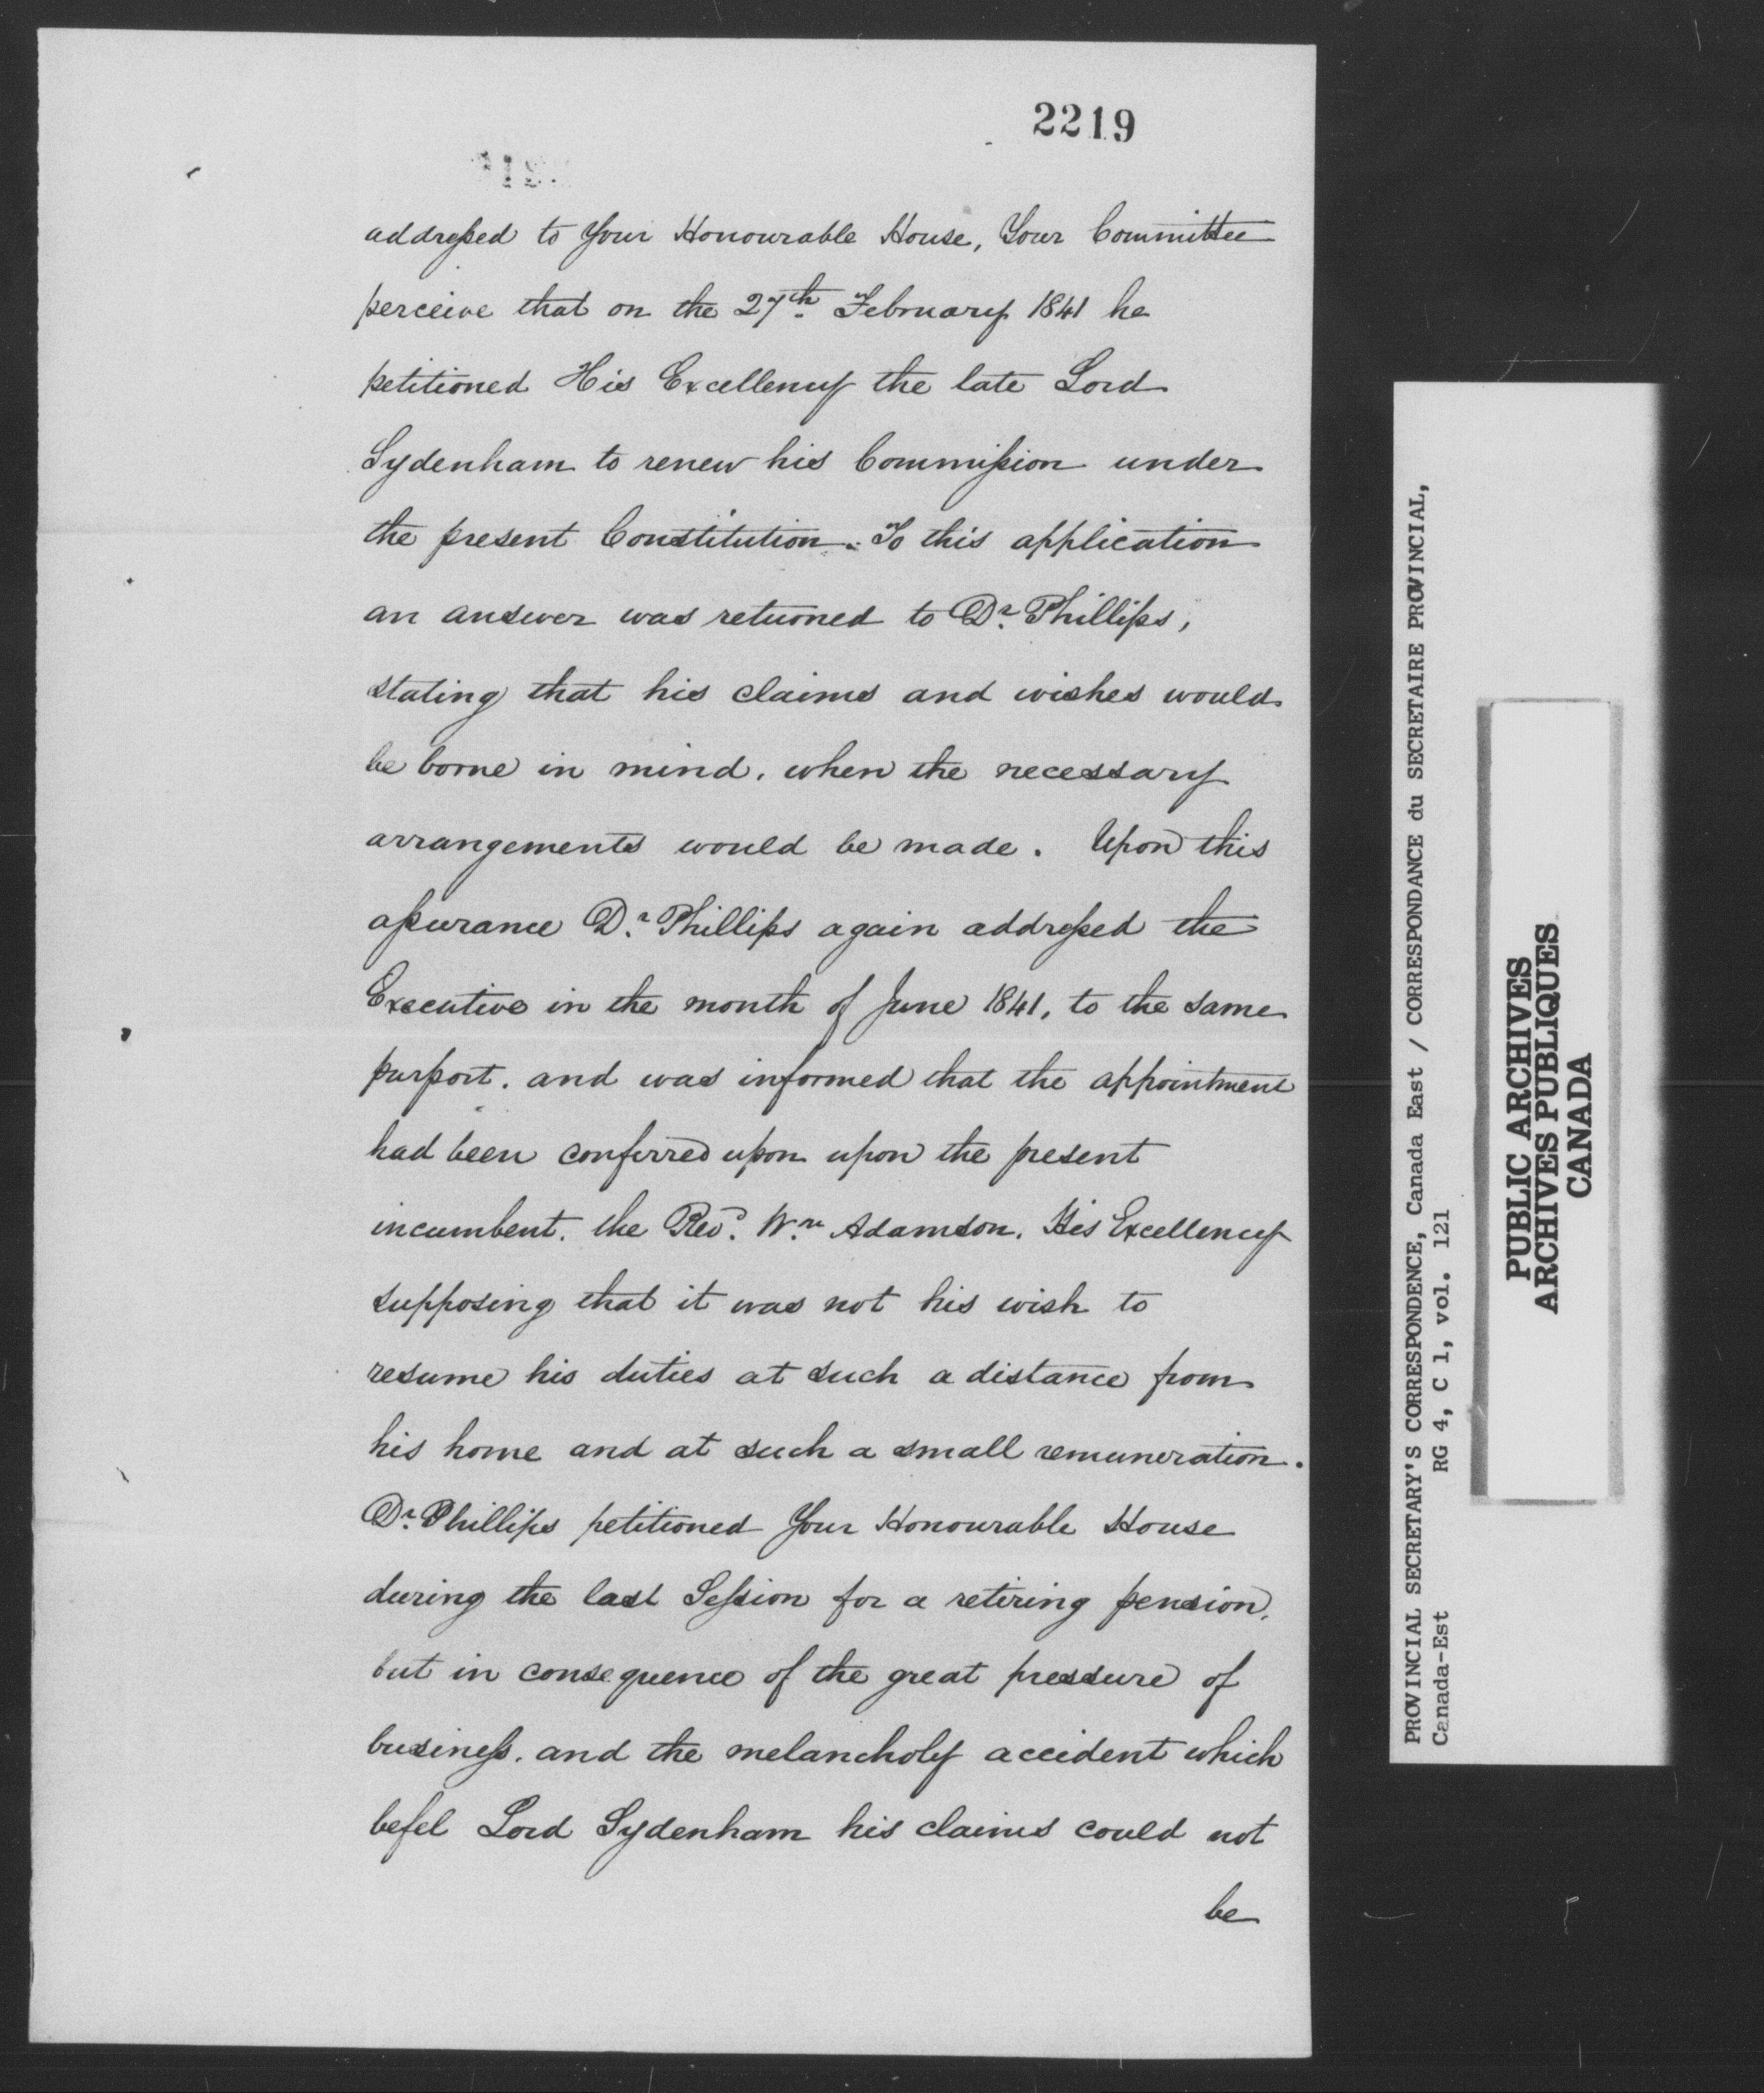 2219
addressed to Your Honourable House, Your Committee
perceive that on the 27th February 1841 he
petitioned His Excellency the late Lord
Sydenham to renew his Commission under
the present Constitution. To this application
an answer was returned to Dr. Phillips,
stating that his claims and wishes would
be borne in mind, when the necessary
arrangements would be made. Upon this
assurance Dr. Phillips again addressed the
Executive in the month of June 1841, to the same
purport, and was informed that the appointment
had been conferred upon upon the present
incumbent, the Revd. Wm. Adamson, His Excellency
supposing that it was not his wish to
resume his duties at such a distance from
his home and at such a small remuneration.
Dr. Phillips petitioned Your Honourable House
during the last Session for a retiring pension,
but in consequence of the great pressure of
business, and the melancholy accident which
befel Lord Sydenham his claims could not
be
PROVINCIAL SECRETARY'S CORRESPONDENCE, Canada East / CORRESPONDANCE du SECRETAIRE PROVINCIAL,
Canada-Est RG 4, C 1, vol. 121
PUBLIC ARCHIVES
ARCHIVES PUBLIQUES
CANADA